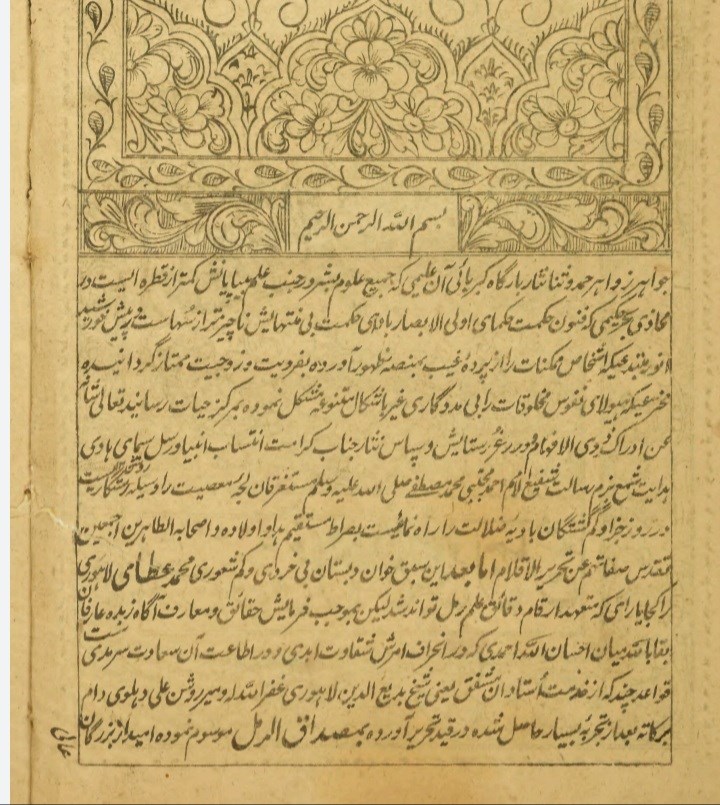 بسم الله الرحمن الرحیم
جواهر زواهر حمد و ثنا نثار بارگاه کبریائی آن علیمی که جمیع علوم بشر در جنب علم بیپایانش کمتر از قطره ایست در
محاذی بحر حکیمی که فنون حکمت حکمای اولی الابصار بادی حکمت بی منتهایش ناچیز تر از سُهاست در پیش خورشید
انور مبدعیکه اشخاص ممکنات را از پردهٔ غیب بمنصهٔ ظهور آورده بفردیت و زوجیت ممتاز گردانیده
مخترعیکه هیولای نفوس مخلوقات را بی مددگاری غیر باشکال متنوعه متشکل نموده بمرکز حیات رسانید تعالی شانه
عن ادراک ذوی الافهام و درر غرر ستایش و سپاس نثار جناب کرامت انتساب انبیا و رسل سیمای هادی
هدایت شمع بزم رسالت شفیع الامم احمد مجتبی محمد مصطفے صلی الله علیه وسلم مستغرقان لجه معصیت را وسیله رستگاریست
در روز جزا و گم گشتگان بادیه ضلالت را راه نمائیست بصراط مستقیم هدا و اولاده و اصحابه الطاهرین اجمعین
تقدس صفاتهم عن تحریر الاقلام اما بعد این سبق خوان دبستان بی خردی و کم شعوری محمد عطای لاهوری
را کجا یارای که متعهد ارقام دقائق علم رمل تواند شد لیکن بموجب فرمایش حقائق و معارف آگاه زبده عارفان
بقا بالله میان احسان الله احمدی که در انحراف امرش شقاوت ابدی و در اطاعت آن سعادت سرمدی ست
قواعد چند که از خدمت اُستادان شفق یعنی شیخ بدیع الدین لاهوری غفر الله له و میر روشن علی دهلوی دام
برکاته بعد از تجربهٔ بسیار حاصل شده در قید تحریر آورده بمصداق الرمل موسوم نموده امید از بزرگان